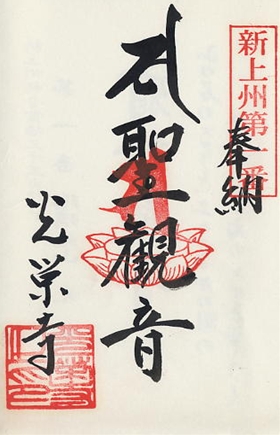 新上州第一番
奉納
聖観音
光栄寺